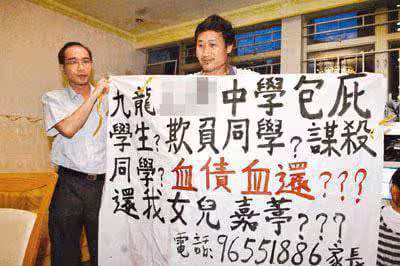 九龍 中學包庇
學生?欺員同學?謀殺
同學?血債血還???
還我女兒嘉葶???
電話:96551886家長